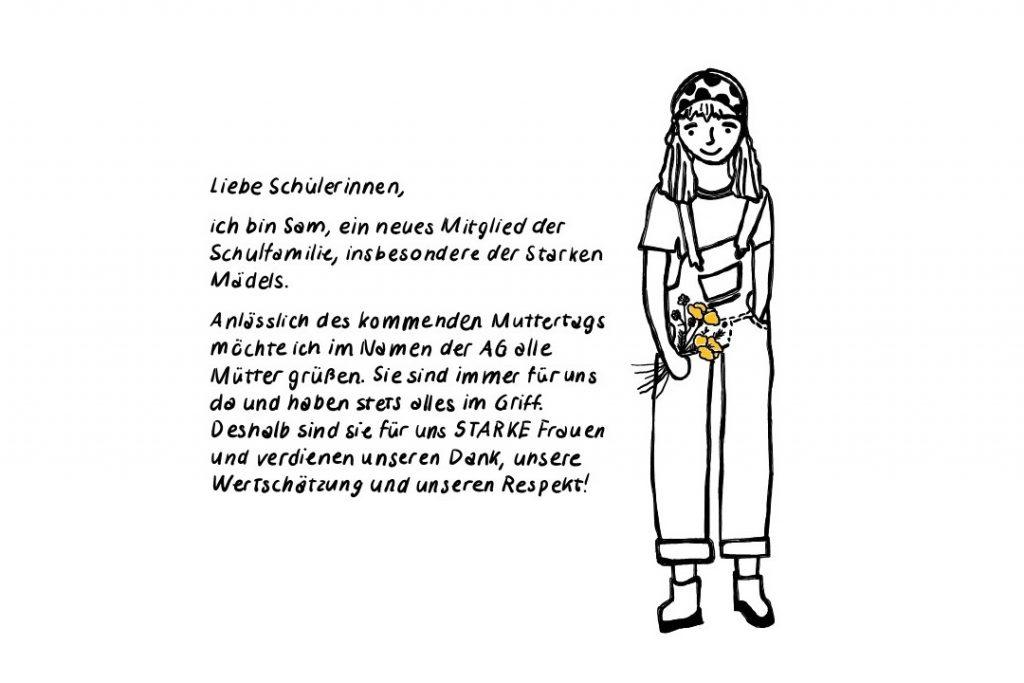 Liebe Schülerinnen,
ich bin Sam, ein neues Mitglied der
Schulfamilie, insbesondere der Starken
Mädels.
Anlässlich des kommenden Muttertags
möchte ich im Namen der AG alle
Mütter grüßen. Sie sind immer für uns
da und haben stets alles im Griff.
Deshalb sind sie für uns STARKE Frauen
und verdienen unseren Dank, unsere
Wertschätzung und unseren Respekt!